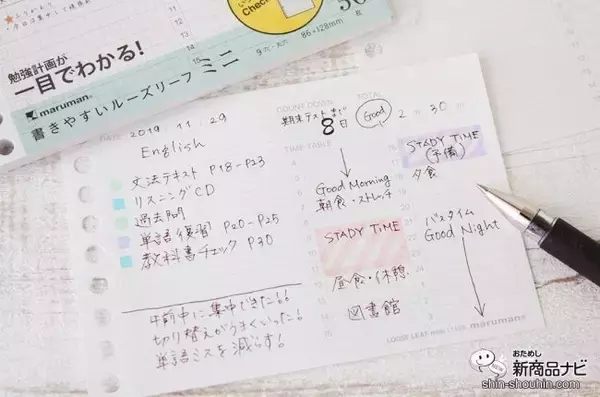 Check
勉強計画が
一目でわかる!
maruman
書きやすいルーズリーフ ミニ
86×128mm
DATE 2019 11.29
English
文法テキスト P18-P23
リスニングCD
過去問
単語(復習) P20-P25
教科書チェック P30
午前中に集中できた!!
切り替えがうまくいった!
単語ミスを減らす!
COUNT DOWN
期末テストまで
8日
TOTAL
Good
2 30
TIME TABLE
4
5
6
Good Morning
朝食・ストレッチ
STADY TIME
昼食・休憩
13
14
図書館
15
16
STADY TIME
(予備)
17
18
夕食
19
20
バスタイム
21
Good Night
22
23
24
1
2
3
LOOSE LEAF mini maruman
おためし
新商品ナビ
shin-shouhin.com